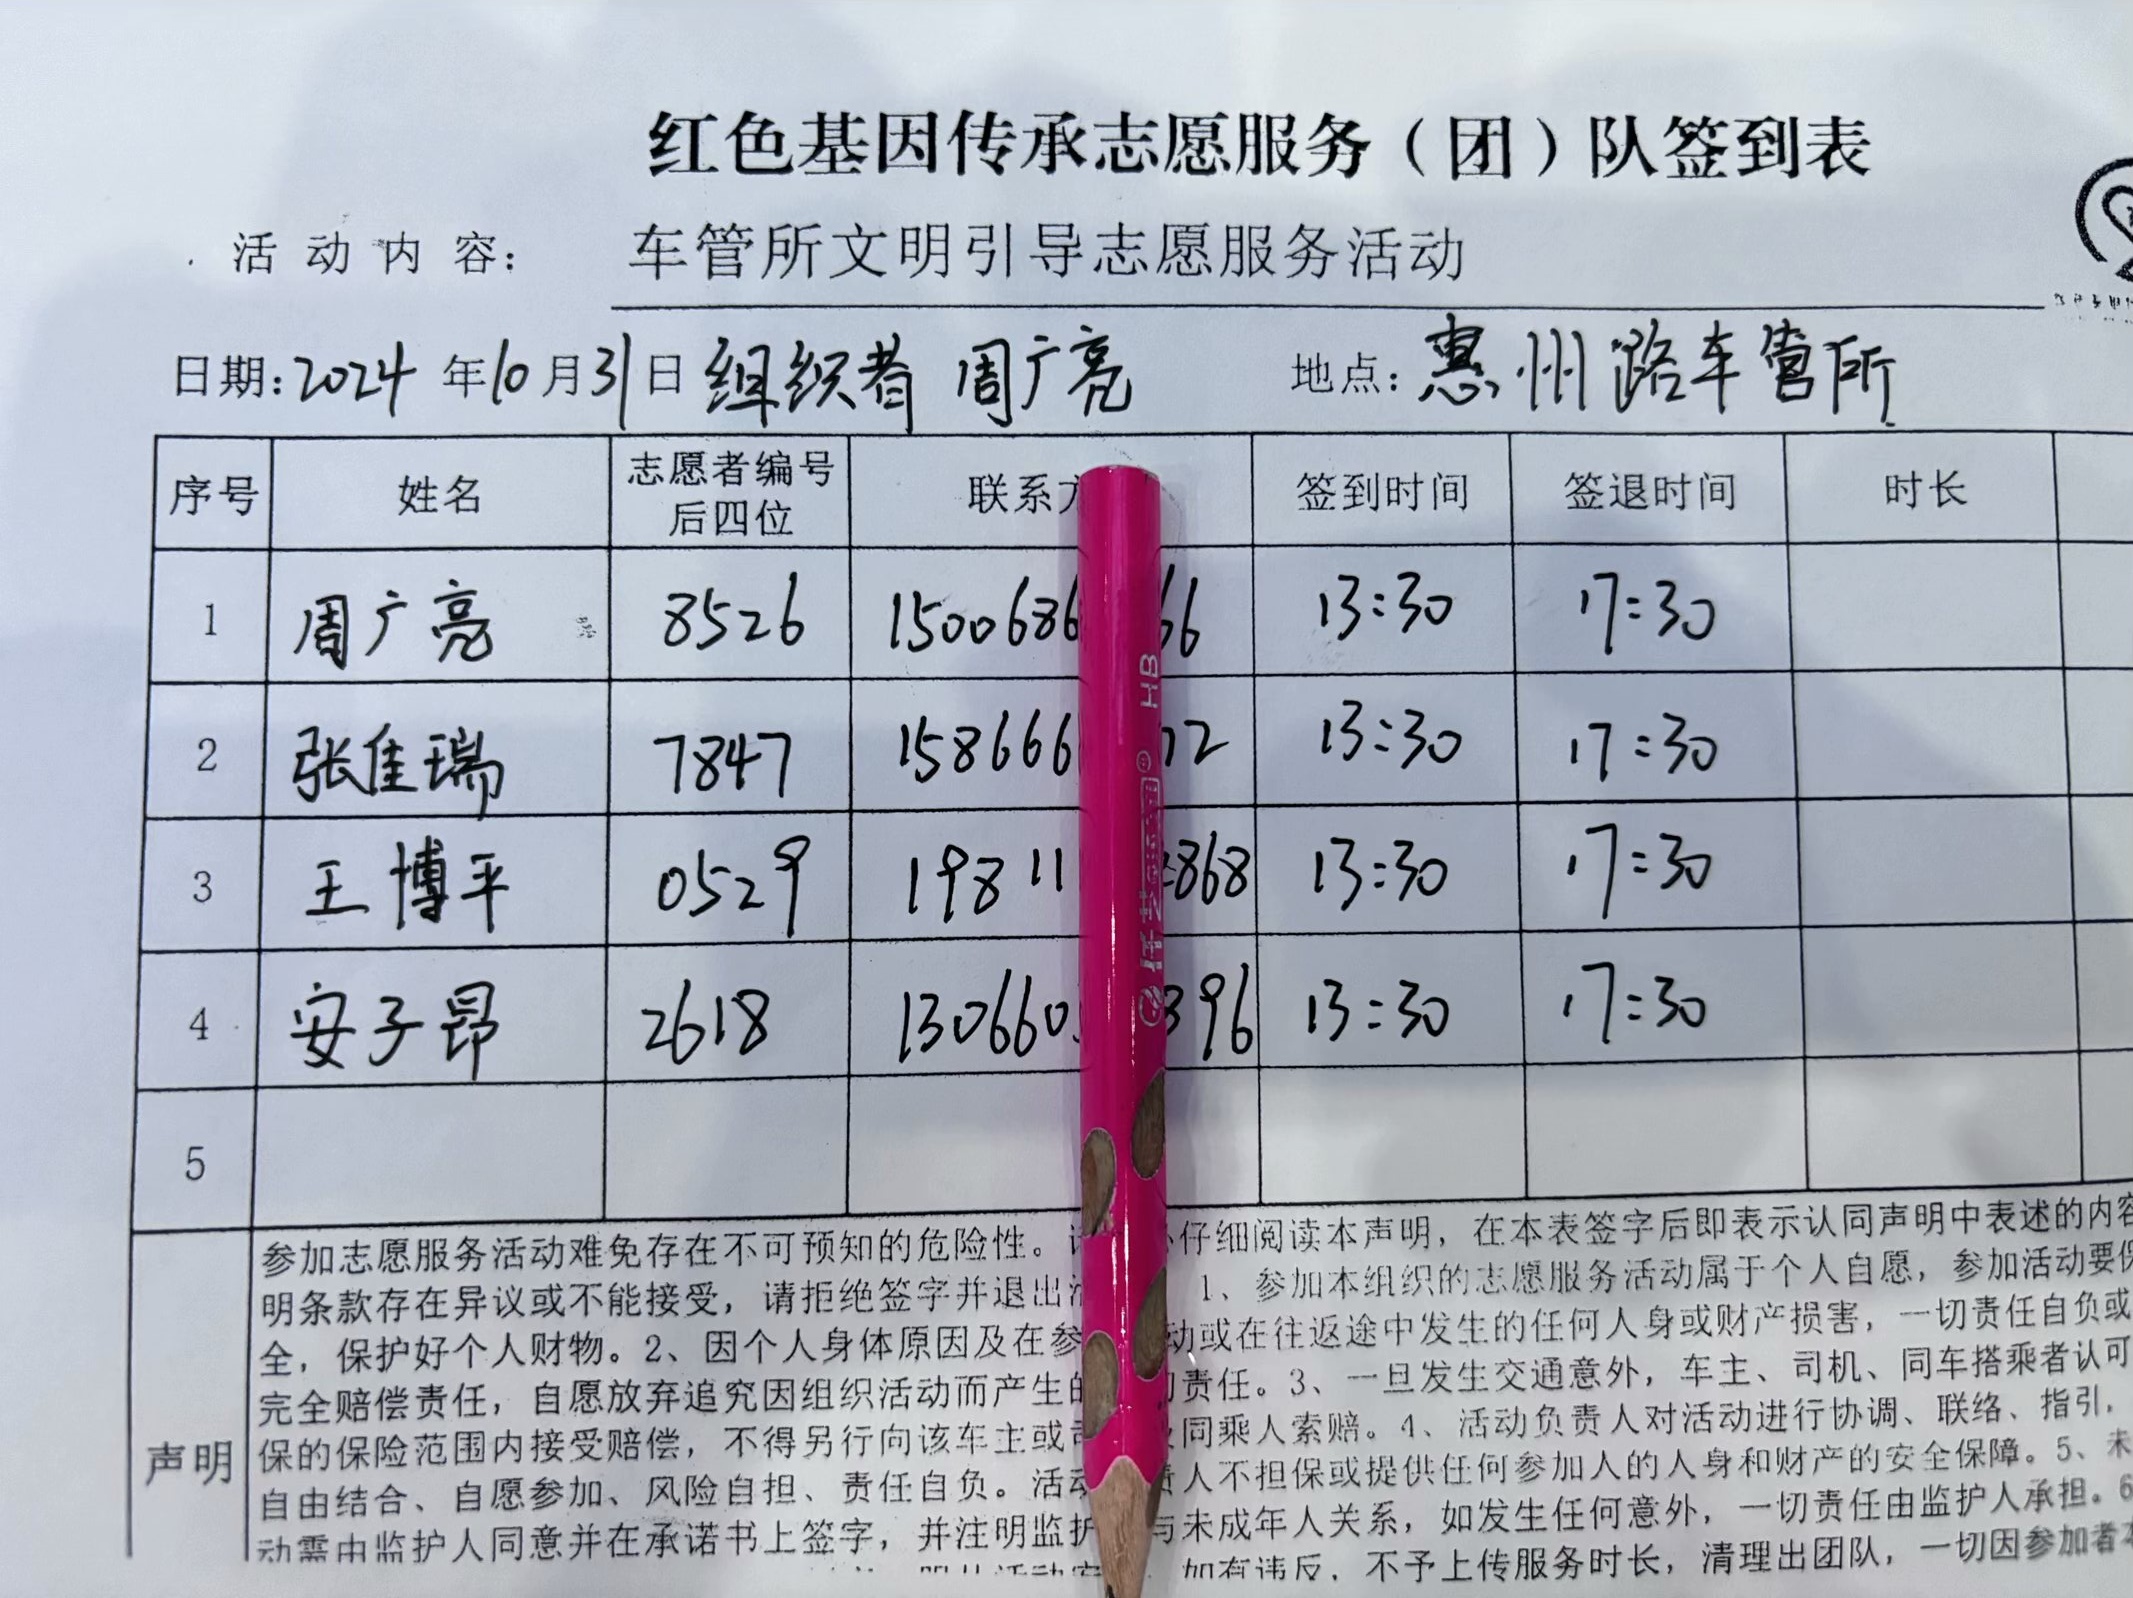 红色基因传承志愿服务（团）队签到表
活动内容： 车管所文明引导志愿服务活动
日期：2024年10月31日 组织者 周广亮 地点：惠州路车管所
序号 姓名 志愿者编号后四位 联系 签到时间 签退时间 时长
1 周广亮 8526 1500686 66 13:30 17:30
2 张佳瑞 7847 158666 72 13:30 17:30
3 王博平 0529 19811 868 13:30 17:30
4 安子昂 2618 130660 396 13:30 17:30
5
参加志愿服务活动难免存在不可预知的危险性。 仔细阅读本声明，在本表签字后即表示认同声明中表述的内容
明条款存在异议或不能接受，请拒绝签字并退出 1、参加本组织的志愿服务活动属于个人自愿，参加活动要保
全，保护好个人财物。2、因个人身体原因及在参 动或在往返途中发生的任何人身或财产损害，一切责任自负或
完全赔偿责任，自愿放弃追究因组织活动而产生的 责任。3、一旦发生交通意外，车主、司机、同车搭乘者认可
声明 保的保险范围内接受赔偿，不得另行向该车主或司 同乘人索赔。4、活动负责人对活动进行协调、联络、指引，
自由结合、自愿参加、风险自担、责任自负。活动 责人不担保或提供任何参加人的人身和财产的安全保障。5、未
动需由监护人同意并在承诺书上签字，并注明监护 与未成年人关系，如发生任何意外，一切责任由监护人承担。6
如有违反，不予上传服务时长，清理出团队，一切因参加者本
HB